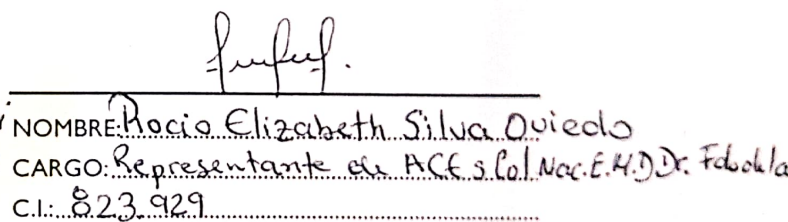 NOMBRE: Rocio Elizabeth Silva Oviedo
CARGO: Representante de ACEs Col. Nac. E.M.D Dr. Fdo de la
C.I.: 823.929